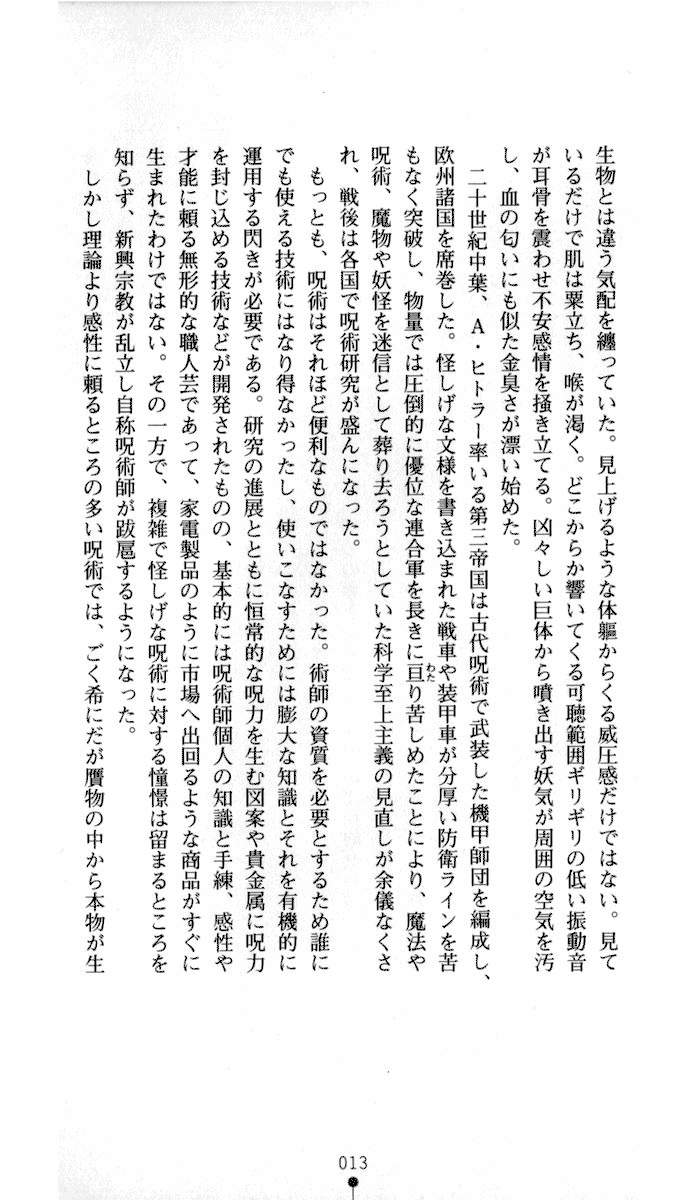 生物とは違う気配を纏っていた。見上げるような体軀からくる威圧感だけではない。見て
いるだけで肌は粟立ち、喉が渇く。どこからか響いてくる可聴範囲ギリギリの低い振動音
が耳骨を震わせ不安感情を掻き立てる。凶々しい巨体から噴き出す妖気が周囲の空気を汚
し、血の匂いにも似た金臭さが漂い始めた。
二十世紀中葉、A・ヒトラー率いる第三帝国は古代呪術で武装した機甲師団を編成し、
欧州諸国を席巻した。怪しげな文様を書き込まれた戦車や装甲車が分厚い防衛ラインを苦
もなく突破し、物量では圧倒的に優位な連合軍を長きに亘り苦しめたことにより、魔法や
わた
呪術、魔物や妖怪を迷信として葬り去ろうとしていた科学至上主義の見直しが余儀なくさ
れ、戦後は各国で呪術研究が盛んになった。
もっとも、呪術はそれほど便利なものではなかった。術師の資質を必要とするため誰に
でも使える技術にはなり得なかったし、使いこなすためには膨大な知識とそれを有機的に
運用する閃きが必要である。研究の進展とともに恒常的な呪力を生む図案や貴金属に呪力
を封じ込める技術などが開発されたものの、基本的には呪術師個人の知識と手練、感性や
才能に頼る無形的な職人芸であって、家電製品のように市場へ出回るような商品がすぐに
生まれたわけではない。その一方で、複雑で怪しげな呪術に対する憧憬は留まるところを
知らず、新興宗教が乱立し自称呪術師が跋扈するようになった。
しかし理論より感性に頼るところの多い呪術では、ごく希にだが贋物の中から本物が生
013